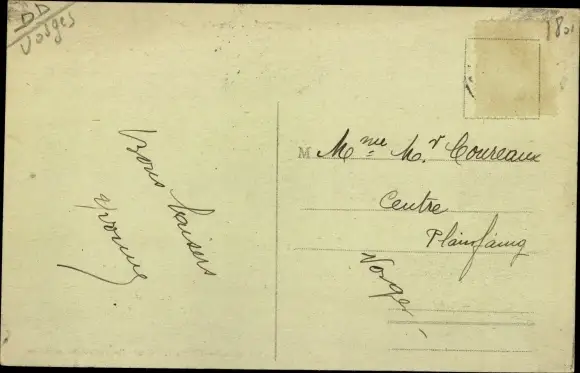 DD
Vosges
180
Bons baisers
Yvonne
M Mme M.r Coureaux
Centre
Plainfaing
Vosges